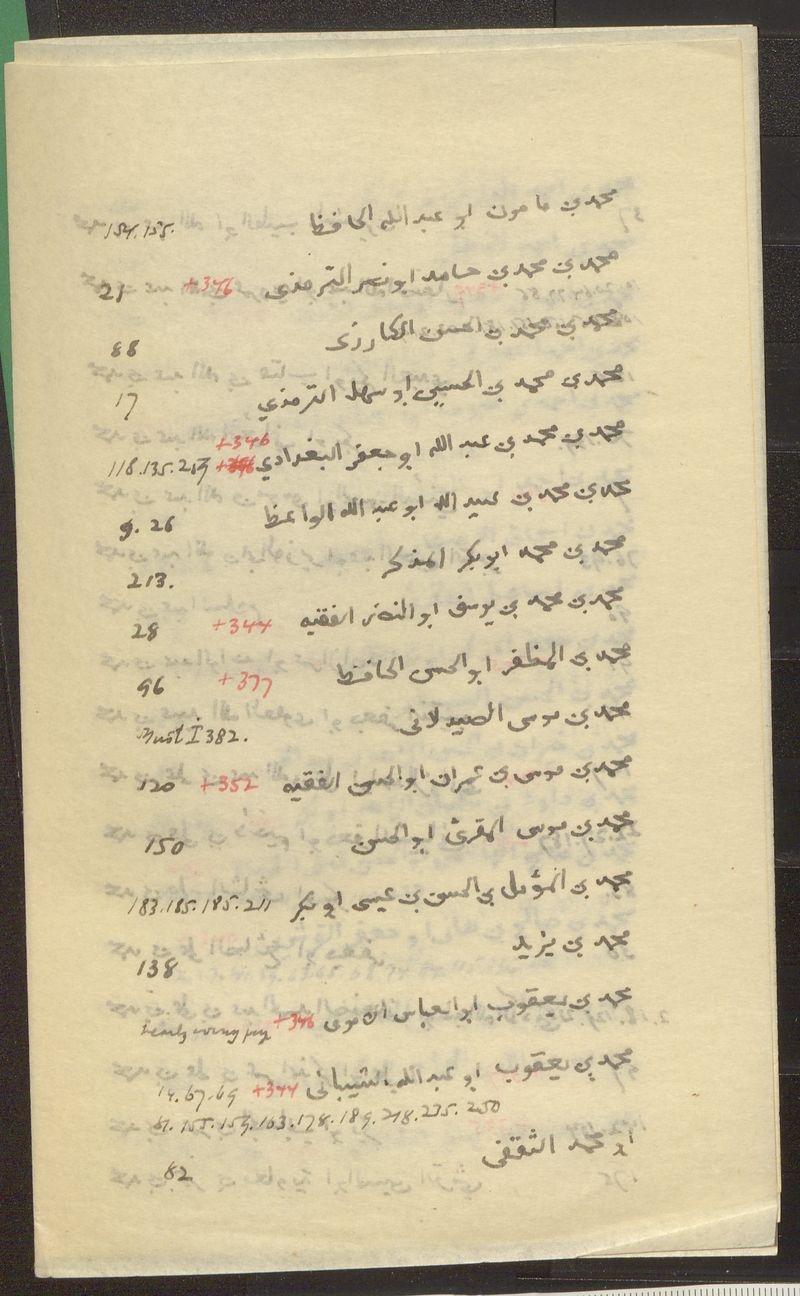 محمد بن مامون ابو عبد الله الحافظ 154. 155.
محمد بن محمد بن حامد ابو نصر الترمذى +346 21
محمد بن محمد بن الحسن الكارزى
88
محمد بن محمد بن الحسين ابو سهل الترمذي
17
محمد بن محمد بن عبد الله ابو جعفر البغدادي +346
118. 135. 259
محمد بن محمد بن عبيد الله ابو عبد الله الواعظ
9. 26
محمد بن محمد ابو بكر المذكر
213.
محمد بن محمد بن يوسف ابو النضر الفقيه +344 28
محمد بن المظفر ابو الحسن الحافظ +377 96
محمد بن موسى الصيدلانى
Must I 382.
محمد بن موسى بن عمران ابو الحسن الفقيه +352 120
محمد بن موسى المقرئ ابو الحسن
150
محمد بن المؤمل بن الحسن بن عيسى ابو بكر 183. 185. 195. 211
محمد بن يزيد
138
محمد بن يعقوب ابو العباس الاموى +346 nearly every pag
محمد بن يعقوب ابو عبد الله الشيبانى +344 14. 67. 69
81. 155. 159. 163. 178. 189. 218. 235. 250
ابو محمد الثقفى
82